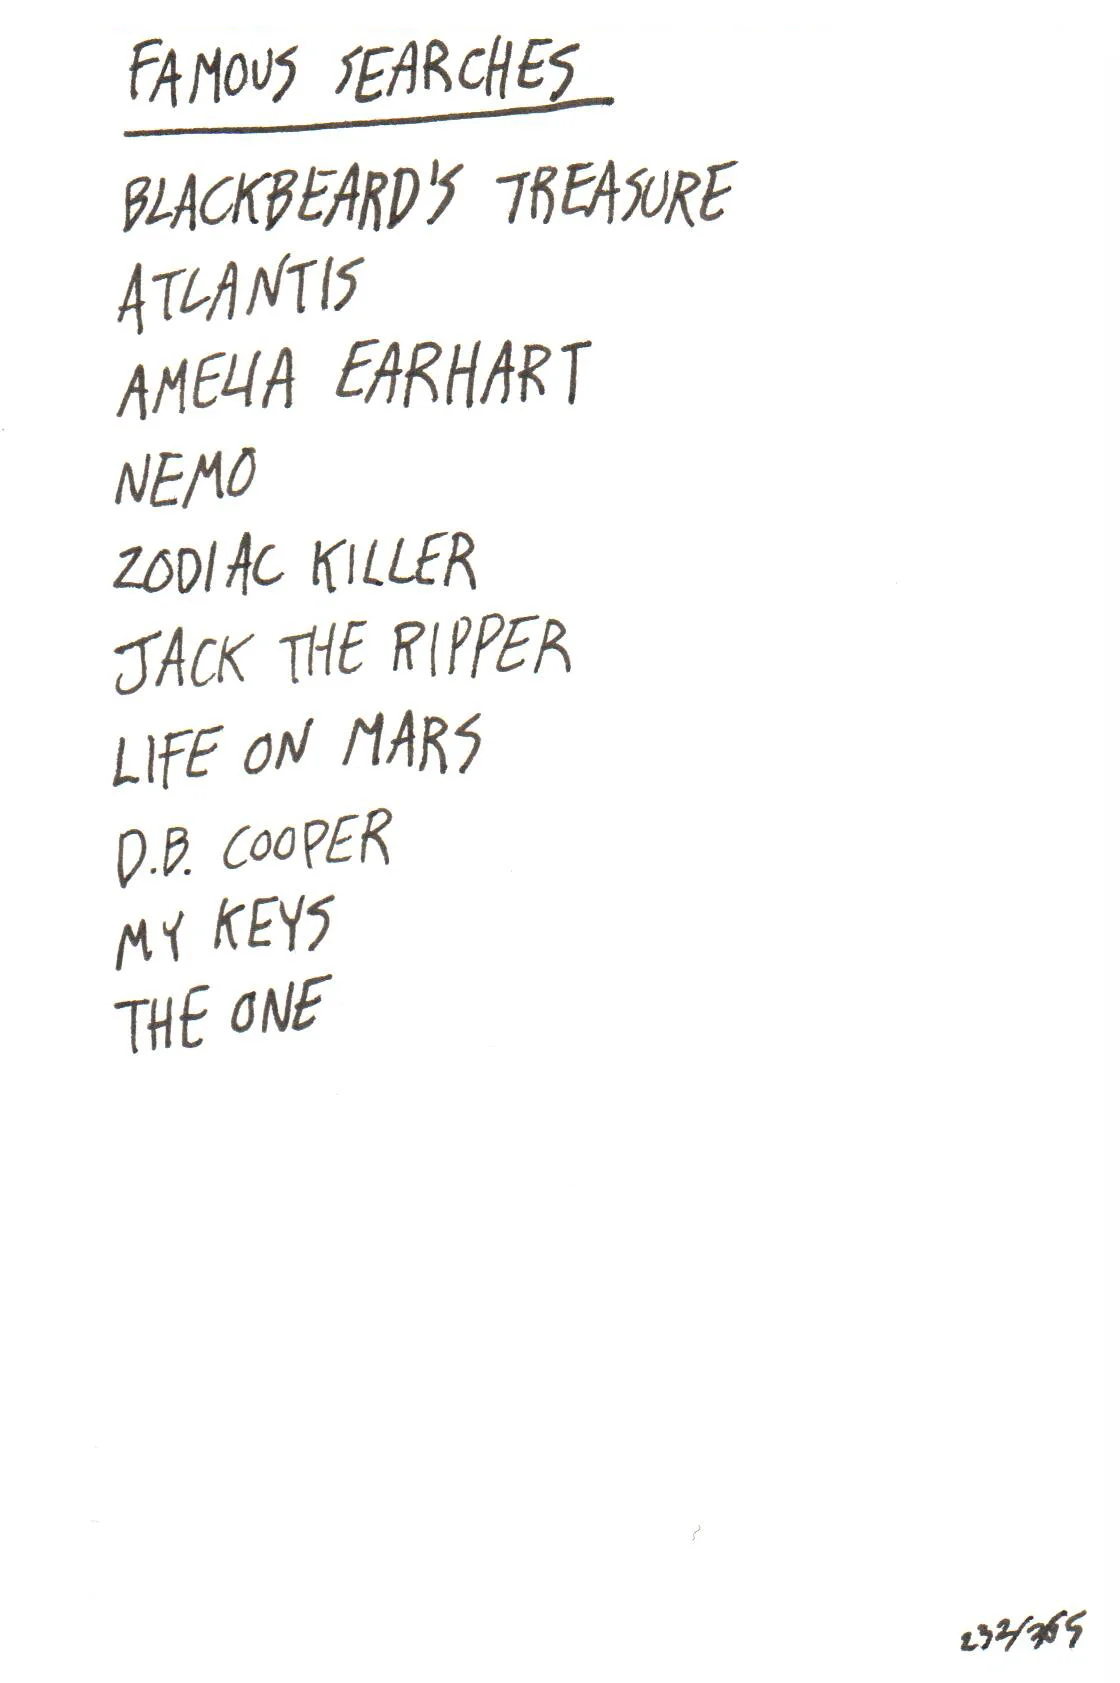 FAMOUS SEARCHES
BLACKBEARD'S TREASURE
ATLANTIS
AMELIA EARHART
NEMO
ZODIAC KILLER
JACK THE RIPPER
LIFE ON MARS
D.B. COOPER
MY KEYS
THE ONE
232/365